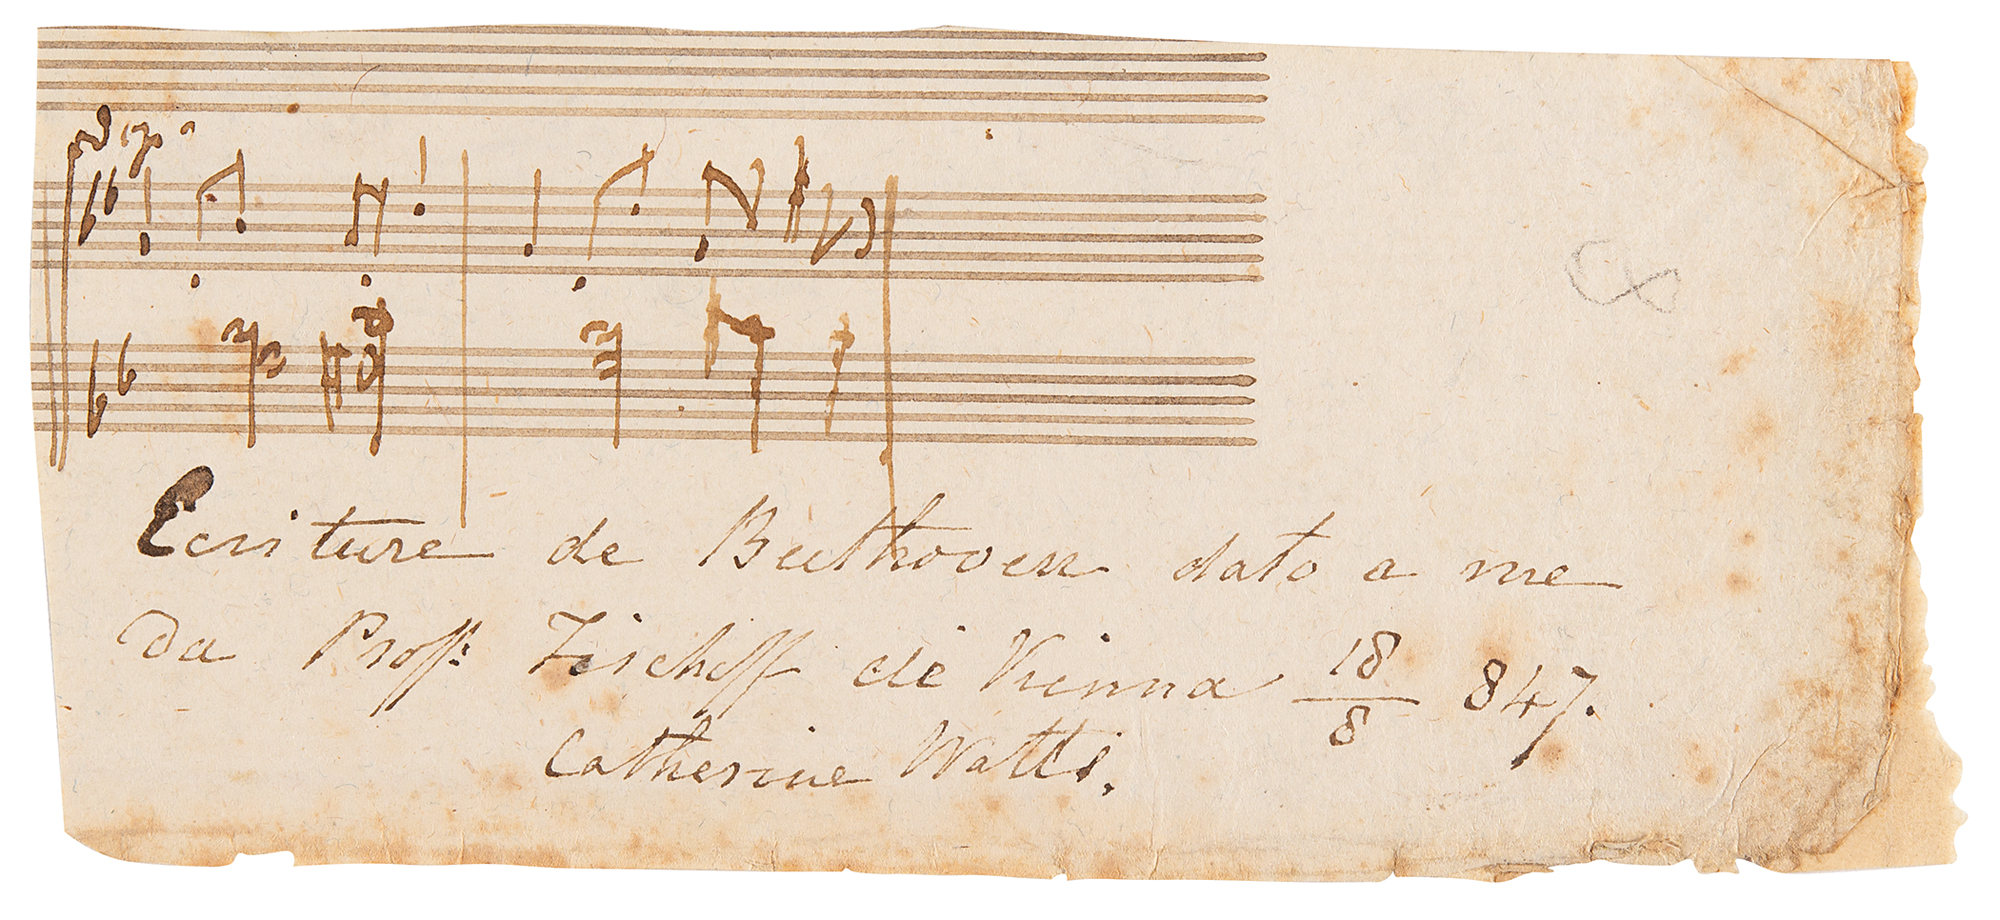 Ecriture de Beethoven dato a me
da Prof: Fischoff de Vienna 18/8 847.
Catherine Watts.